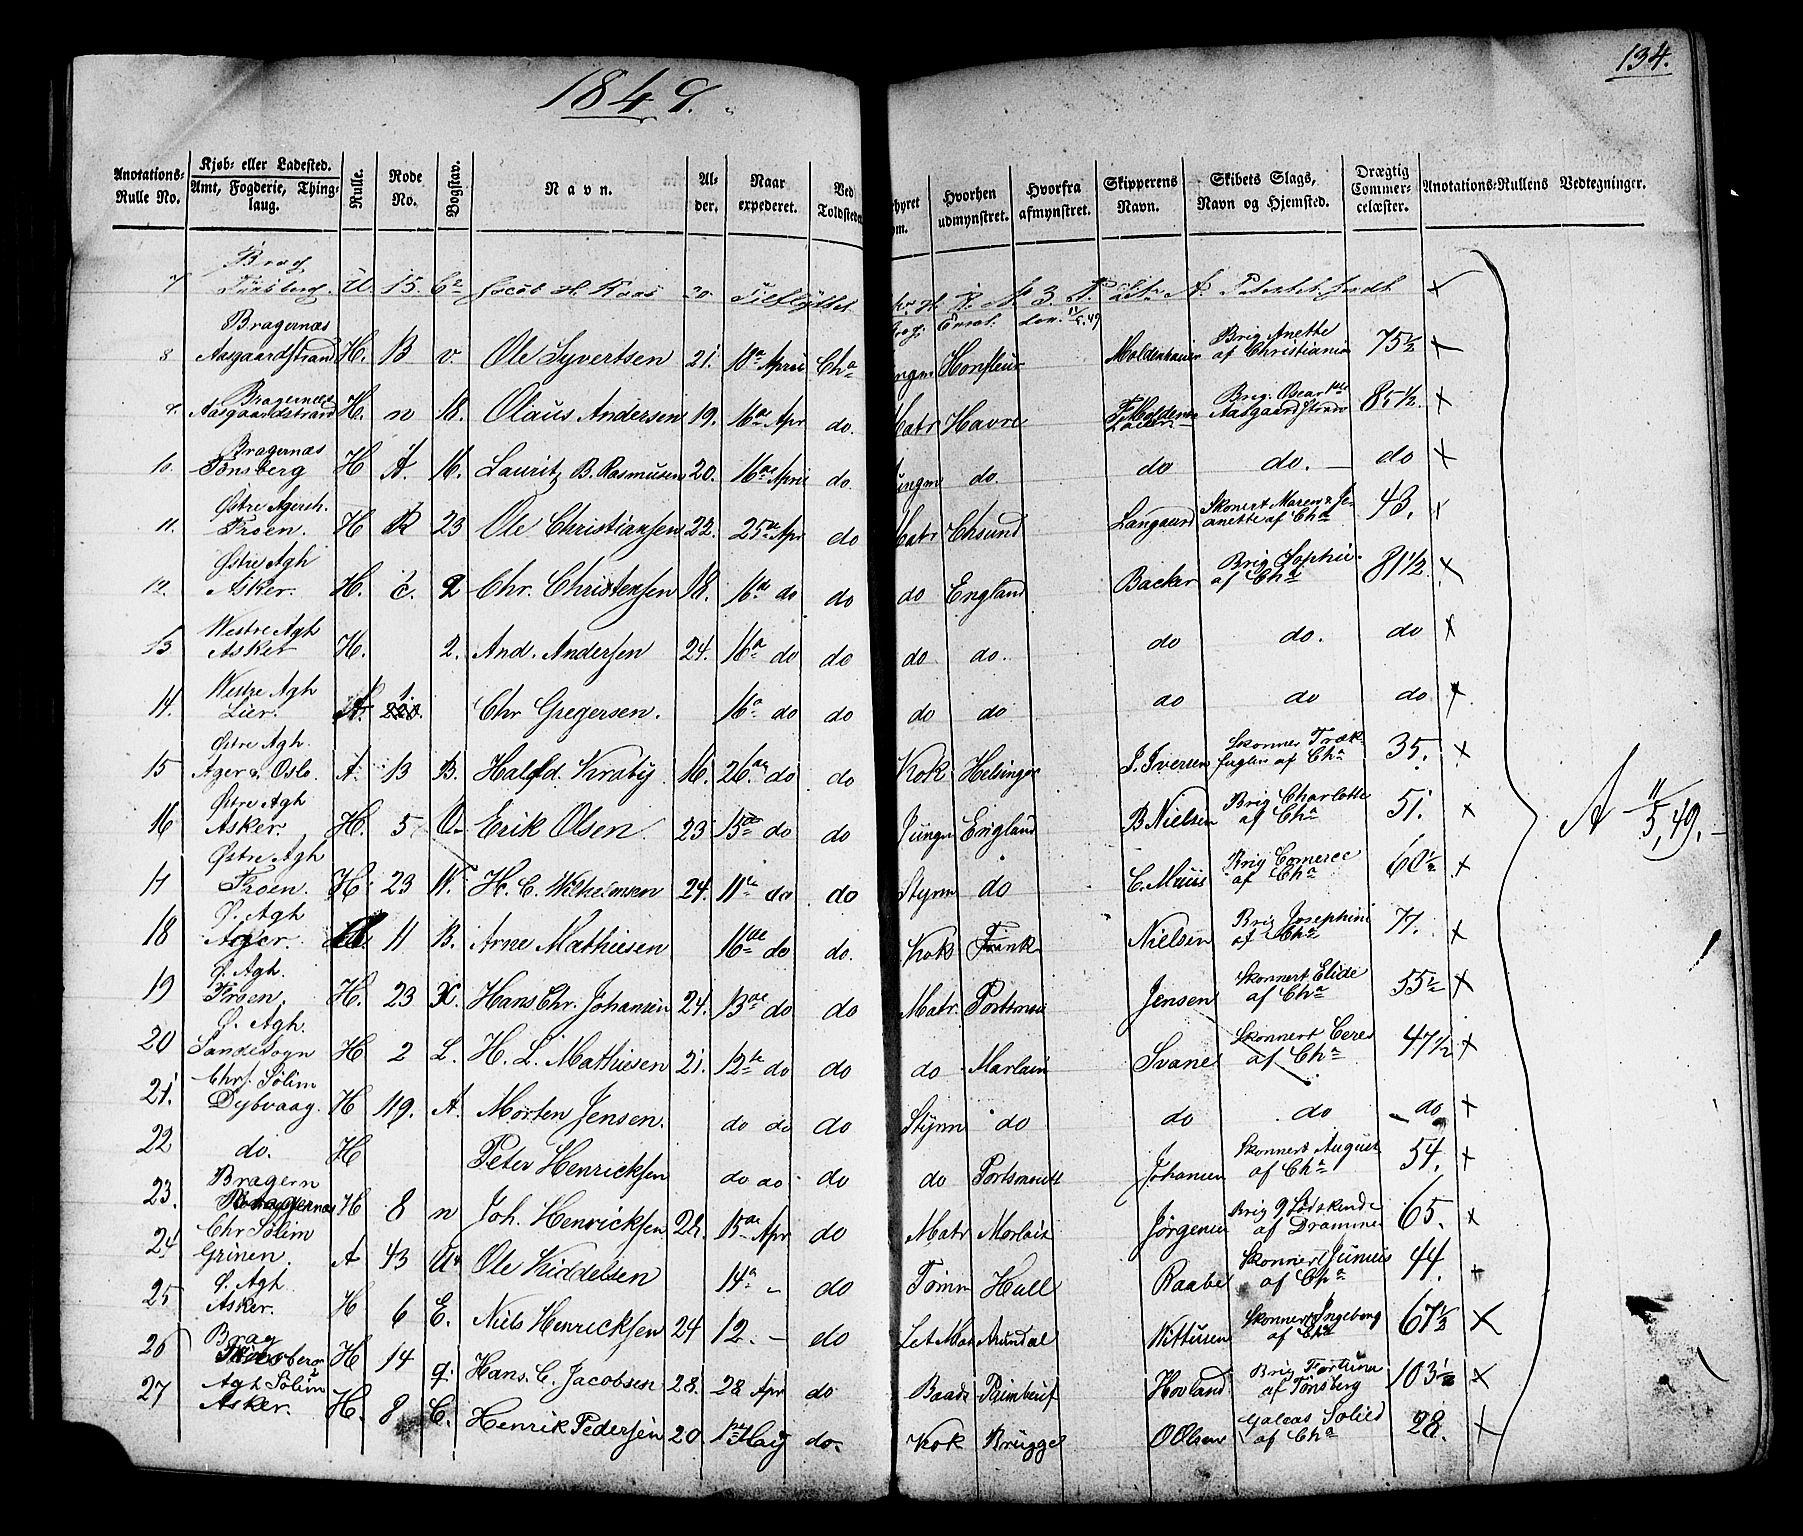 134.
1849.
Anotations-Rulle No. | Kjøb- eller Ladested. Amt, Fogderie, Thinglaug. | Rulle. | Rode No. | Bogstav. | Navn. | Alder. | Naar expederet. | Ved Toldstedet | rhyret om. | Hvorhen udmynstret. | Hvorfra afmynstret. | Skipperens Navn. | Skibets Slags, Navn og Hjemsted. | Drægtig Commercelæster. | Anotations-Rullens Vedtegninger.
7 | Brag Tönsberg. | U | 15 | Jacob H. Kaas | 20 | Tilflyttet | ×
8 | Bragernæs Aasgaardstrand | H. | B | v. | Ole Syvertsen | 21. | 18de April | Cha | ungm | Honfleur | Moldenhauer | Brig Anette af Christiania | 75½ | ×
9. | Bragernæs Aasgaardstrand | H. | n | 18. | Olaus Andersen | 19. | 16de Apr | do. | Matr | Havre | Brig. Oscar Aasgaardstrand | 85½. | ×
10. | Bragernæs Tönsberg | H | A. | 16. | Lauritz B. Rasmusen | 20. | 16de April | do. | ungm | do. | do | do. | do | ×
11. | Østre Agersh. Froen. | H | R | 23 | Ole Christiansen | 22. | 25de Apr | do | Matr | Chsund | Langaard | Skonert Maren & Jeanette af Cha | 43. | ×
12. | Østre Agh Asker. | H. | c. | 2 | Chr. Christensen | 18. | 16de do | do | do | England | Backer | Brig Sophie af Cha | 81½. | ×
13 | Westre Agh Asker | H. | 2. | And. Andersen | 24. | 16de do | do | do | do. | do | do. | do | ×
14. | Westre Agh Lier. | A. | 1. | Chr Gregersen. | 16de do | do | do | do | do | do | do. | ×
15 | Østre Agh. Ager & Oslo. | A. | 13 | B. | Halfd. Kraby | 16. | 26de do | do | Kok | Helsingör | J. Iversen | Skonner Trækfuglen af Cha | 35. | ×
16 | Østre Agh Asker. | H. | 5 | O. | Erik Olsen | 23 | 15de do | do | Jungm | England | B Nielsen | Brig Charlotte af Cha | 51. | ×
17 | Østre Agh Froen. | H. | 23 | W. | H. C. Wilhelmsen | 24. | 11te do | do | Styrm | do | C. Muus | Brig Comerce af Cha | 60½ | ×
18 | Ø. Agh Ager. | 11 | B. | Arne Mathiesen | 16de do | do. | Kok | Frank | Nielsen | Brig Josephine af Cha | 77. | ×
19 | Ø. Agh. Froen. | H. | 23 | X. | Hans Chr. Johansen | 24. | 13de do | do | Matr. | Portsmou | Jensen | Skonnert Elide af Cha | 55½ | ×
20 | Ø. Agh. Sandesogn | H | 2 | L. | H. L. Mathiesen | 21. | 12te do | do | do | Morlaix | Svane | Skonnert Ceres af Cha | 47½ | ×
21. | Chrs. Sölim Dybvaag. | H | 119. | A. | Morten Jensen. | do do | do | Styrm | do | do | do | do | ×
22 | do. | H | Peter Henricksen | do do | do | do | Portsmouth | Johansen | Skonnert August af Cha | 54. | ×
23. | Bragern | H | 8 | n | Joh. Henricksen | 28. | 15de Apr | do | Matr | Morlaix | Jörgensen | Brig 9 Södskende af Drammen | 65. | ×
24 | Chr Sölim Grinen. | A | 43 | Ole Kiddelsen | 14de - | do | Tömm | Hull | Raabe | Skonnert Junius af Cha | 44. | ×
25 | Ø. Agh. Asker. | H | 6 | E. | Niels Henricksen | 24 | 12. - | do | Let Mat | Arundal | Wittusen | Skonnert Ingeborg af Cha | 67½ | ×
26 | Brag | H | 14 | q. | Hans. C. Jacobsen | 28. | 28 Apr | do | Baads | Paimbeuf | Hovland | Brig Fortuna af Tönsberg | 103½ | ×
27 | Agh Sölim Asker. | H. | 8 | C. | Henrik Pedersen | 20 | 1ste Maj | do. | Kok | Brügge | O Olsen | Galeas Solid af Cha | 28. | ×
A 11/5, 49.